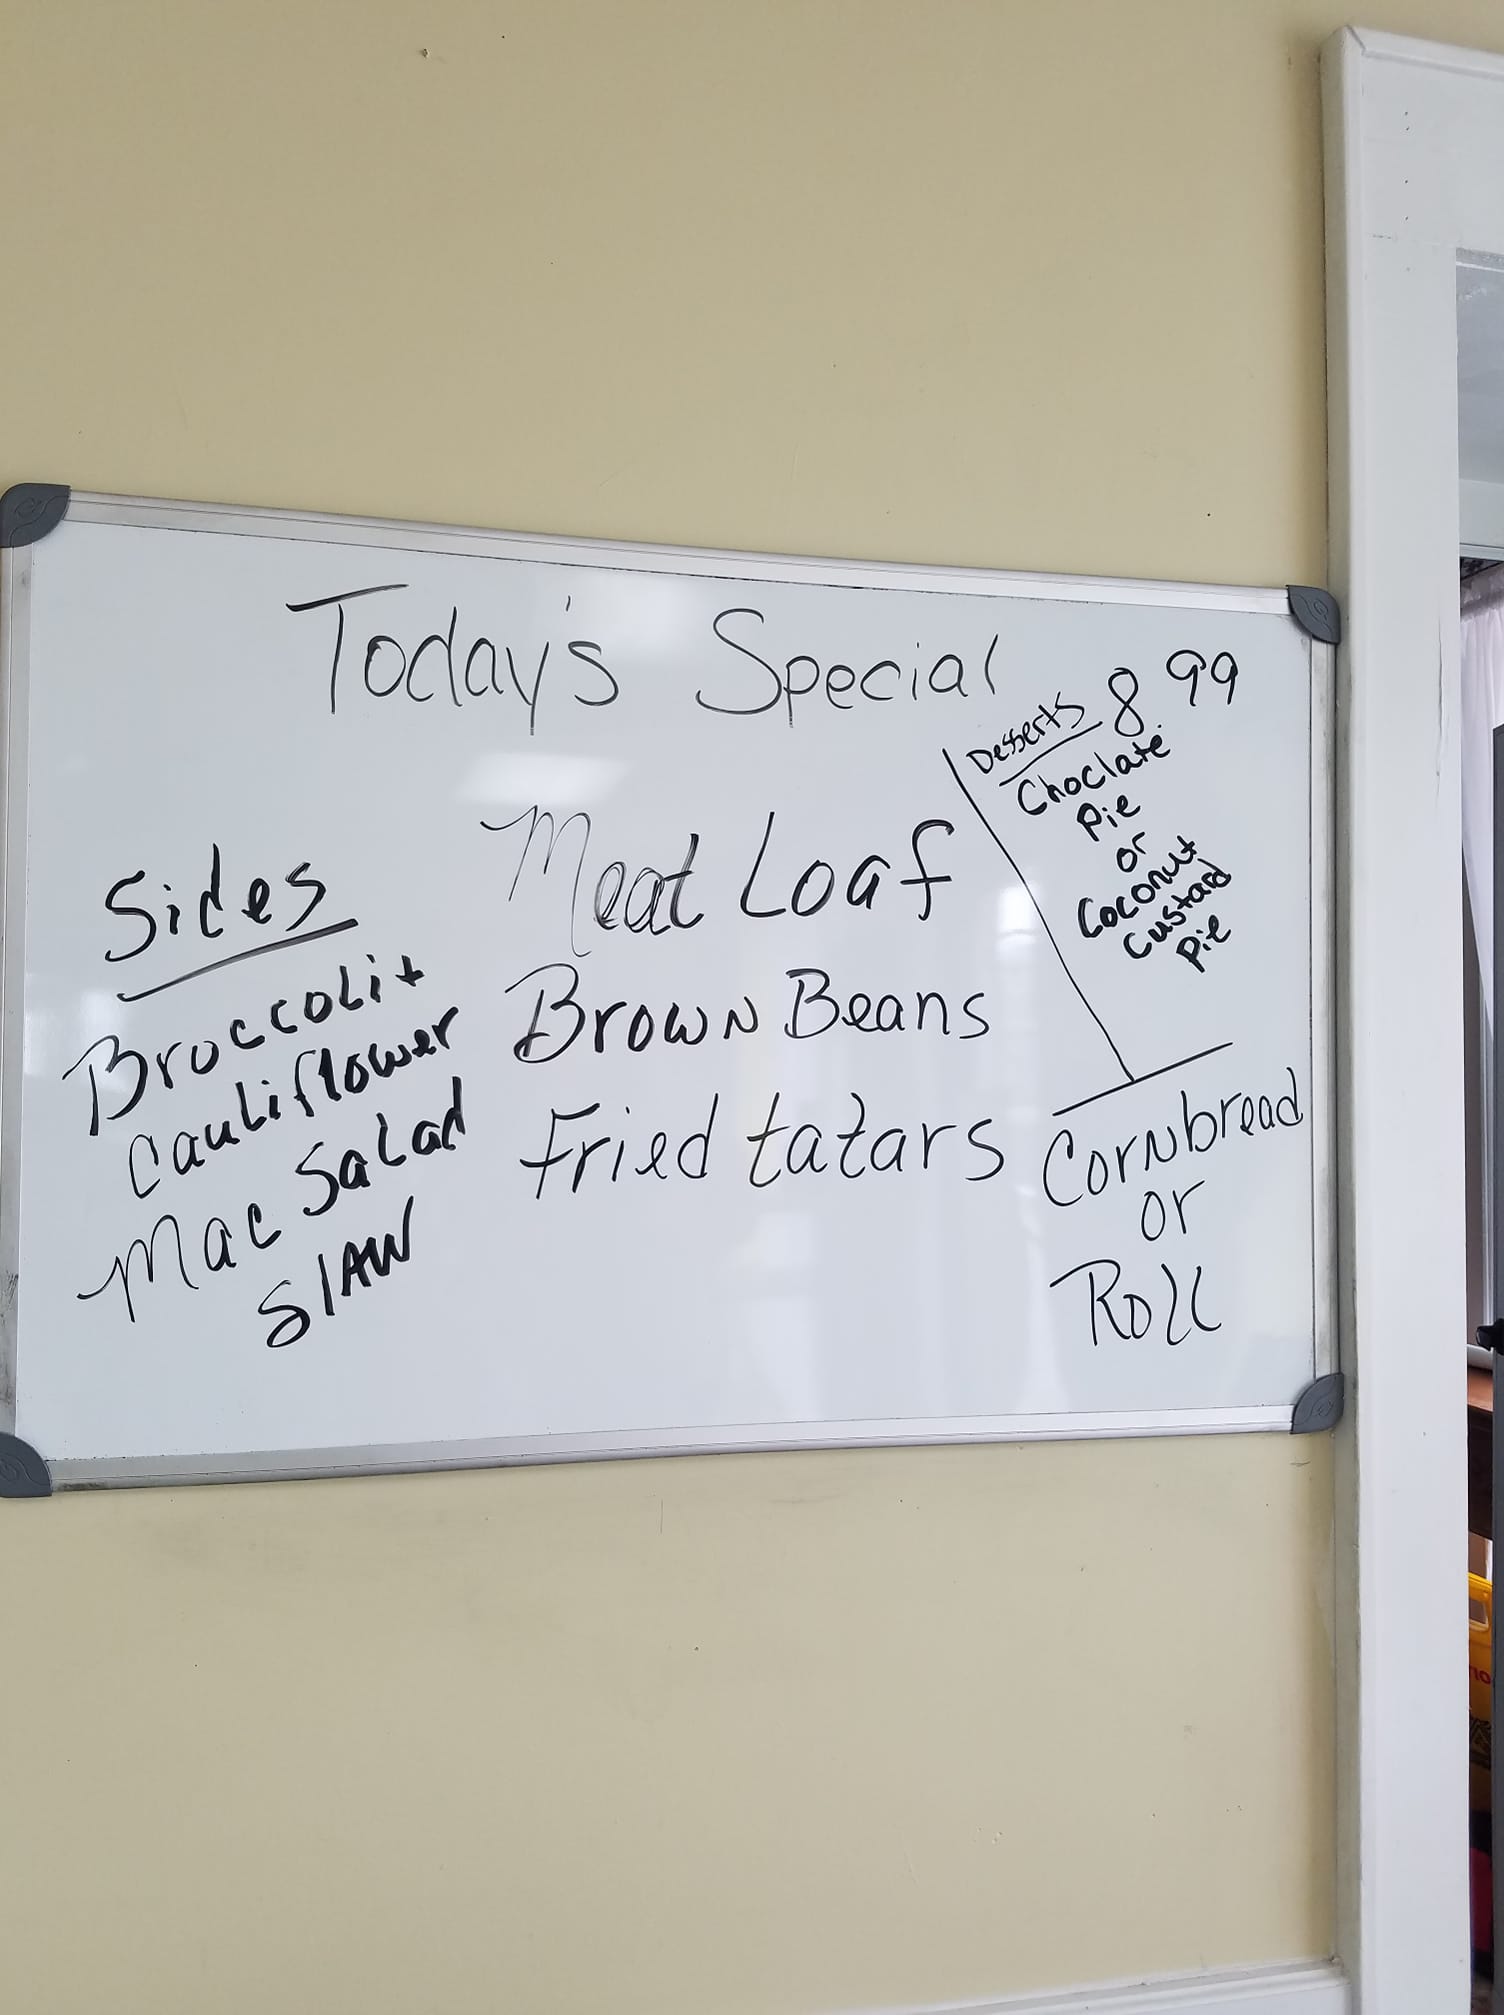 Today's Special
8 99
Sides
Broccoli +
cauliflower
Mac Salad
SlAW
Meat Loaf
Brown Beans
Fried tatars
Desserts
Choclate
Pie
or
Coconut
Custard
Pie
Cornbread
or
Roll